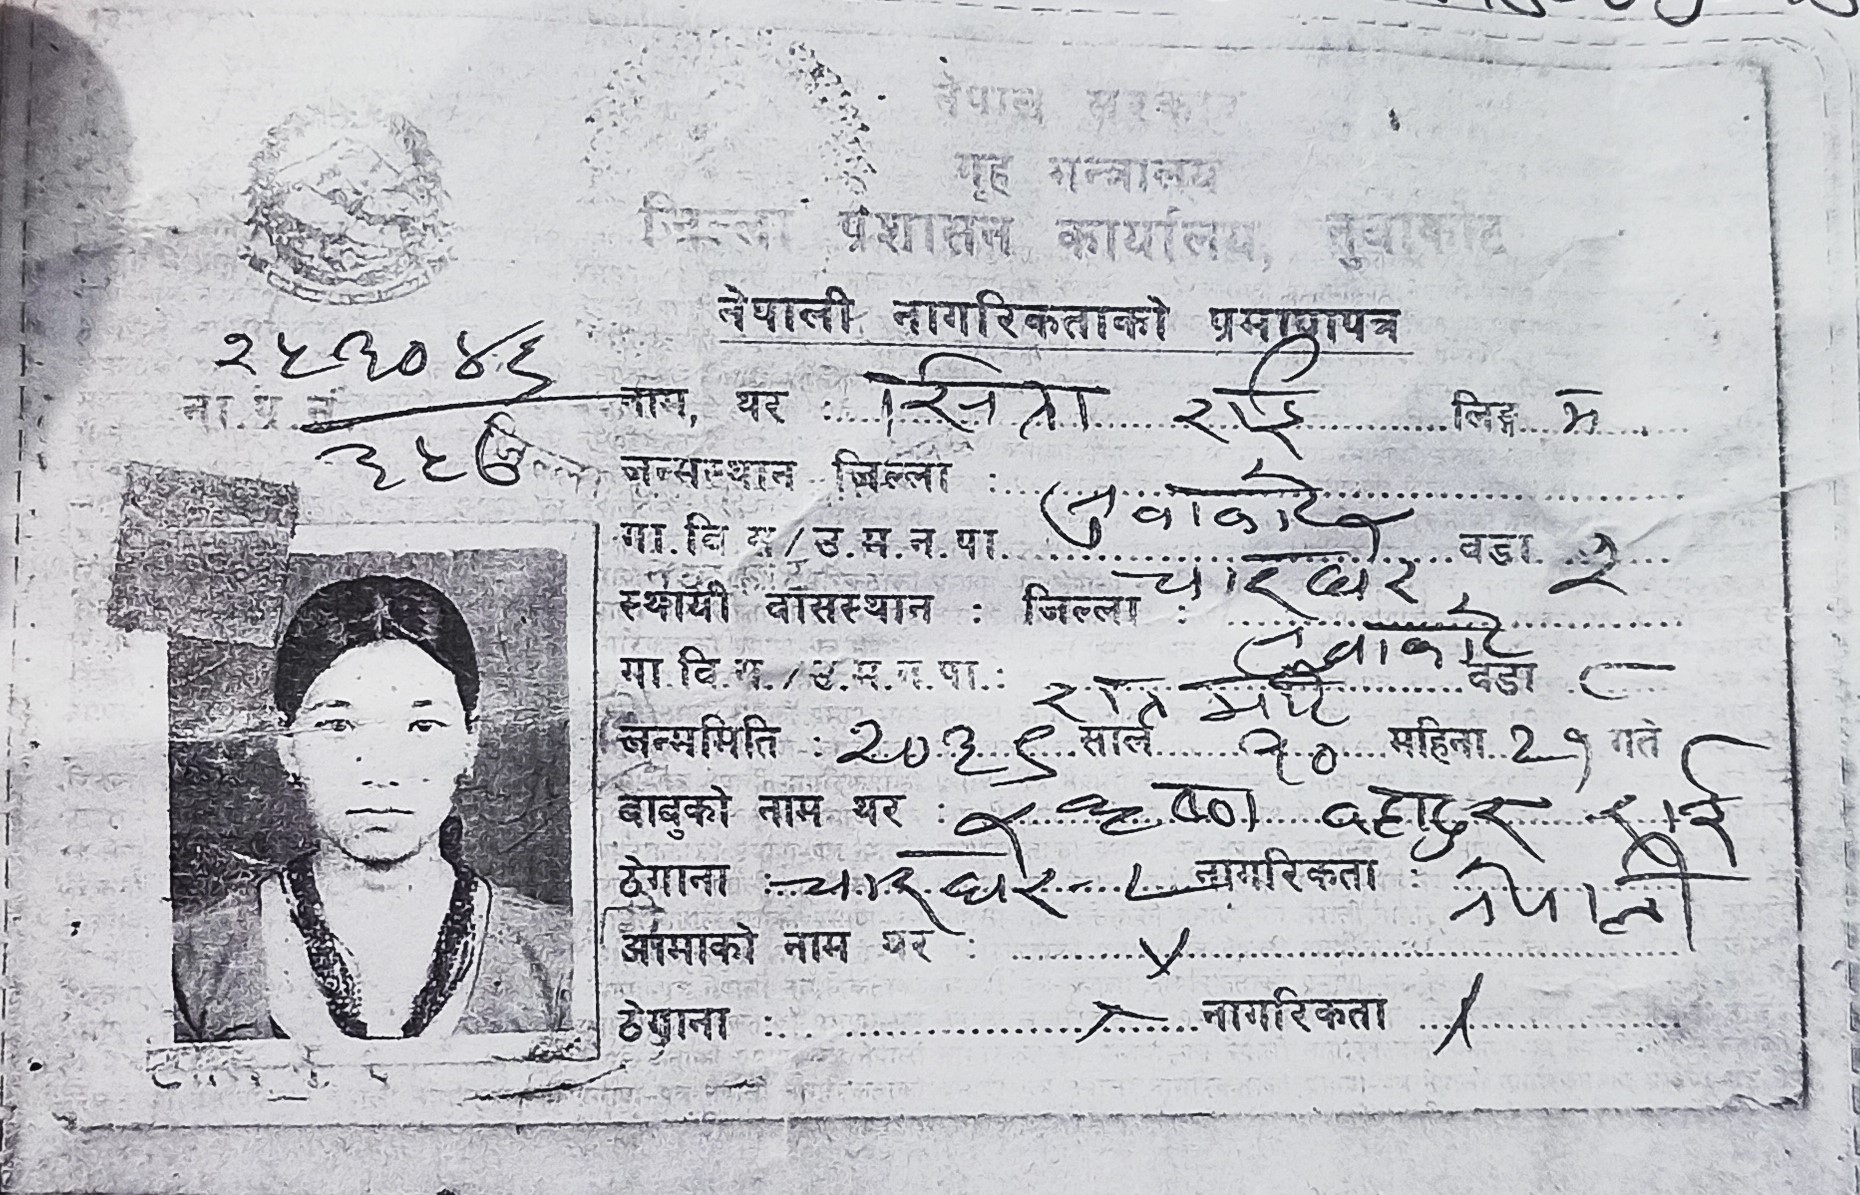 नेपाल सरकार
गृह मन्त्रालय
जिल्ला प्रशासन कार्यालय, नुवाकोट
नेपाली नागरिकताको प्रमाणपत्र
ना.प्र.नं.
नाम, थर : राई लिङ्ग म
जन्मस्थान जिल्ला : नुवाकोट
गा.वि.स/उ.म.न.पा. चारघरे वडा २
स्थायी वासस्थान : जिल्ला : नुवाकोट
गा.वि.स./उ.म.न.पा.: वडा ८
जन्ममिति : २०३९ साल १० महिना २१ गते
बाबुको नाम थर : कृष्ण बहादुर राई
ठेगाना : चारघरे - ८ नागरिकता : नेपाली
आमाको नाम थर : X
ठेगाना : X नागरिकता X